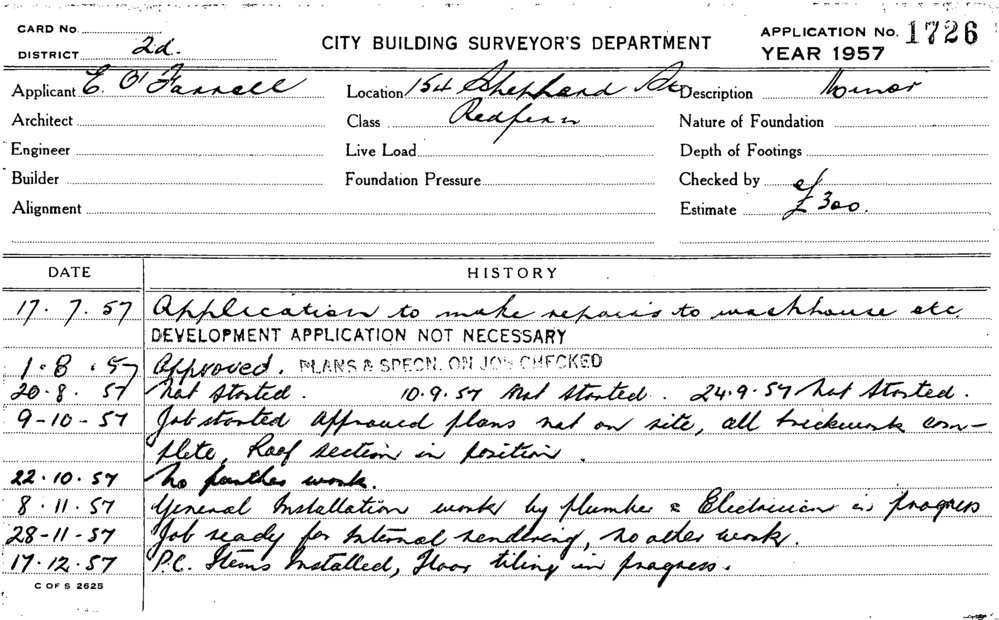 CARD No.
DISTRICT 2d.
CITY BUILDING SURVEYOR'S DEPARTMENT
APPLICATION No. 1726
YEAR 1957
Applicant E. O'Farrell Location 154 Shepherd St Description Minor
Architect Class Redfern Nature of Foundation
Engineer Live Load Depth of Footings
Builder Foundation Pressure Checked by
Alignment Estimate £300.
DATE HISTORY
17.7.57 Application to make repairs to washhouse etc.
DEVELOPMENT APPLICATION NOT NECESSARY
1.8.57 Approved. PLANS & SPECN. ON JOB CHECKED
20.8.57 Not Started. 10.9.57 Not Started. 24.9.57 Not Started.
9-10-57 Job started approved plans not on site, all brickwork com-
plete, Roof section in position.
22.10.57 No further work.
8.11.57 General Installation work by plumber & Electrician in progress
28-11-57 Job ready for Internal rendering, no other work.
17.12.57 P.C. Items Installed, Floor tiling in progress.
C OF S 2625